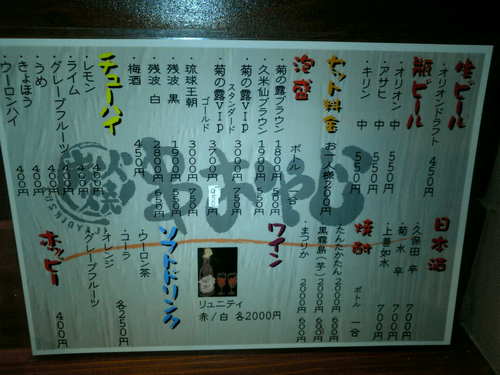 生ビール
・オリオンドラフト 450円
瓶ビール
・オリオン 中 550円
・アサヒ 中 550円
・キリン 中 550円
セット料金
お一人様200円
泡盛
ボトル 一合
・菊の露ブラウン 1800円 500円
・久米仙ブラウン 1800円 500円
・菊の露VIP スタンダード 3000円 750円
・菊の露VIP ゴールド
・琉球王朝 3000円 750円
・残波 黒
・残波 白
・梅酒
チューハイ
・レモン 400円
・ライム 400円
・グレープフルーツ 400円
・うめ 400円
・きょほう 400円
・ウーロンハイ 400円
日本酒
・久保田 辛 700円
・菊水 辛 700円
・上善如水 700円
焼酎
ボトル 一合
・たんたかたん 2000円 600円
・黒霧島(芋) 2000円 600円
・まつりか 2000円 600円
ワイン
リュニティ
赤/白 各2000円
ソフトドリンク
・ウーロン茶
・コーラ
・オレンジ
・グレープフルーツ
各250円
ホッピー
400円